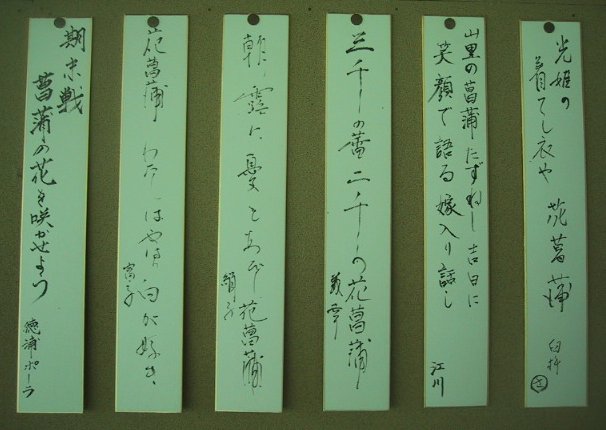 光姫の
着てし衣や 花菖蒲
臼杵
山里の菖蒲たずねし吉日に
笑顔で語る嫁入り話し
江川
三千の蕾二千の花菖蒲
朝露に とあび花菖蒲
絹子
花菖蒲 わたしはやはり白が好き
富子
期末戦
菖蒲の花を咲かせよう
徳浦ポーラ